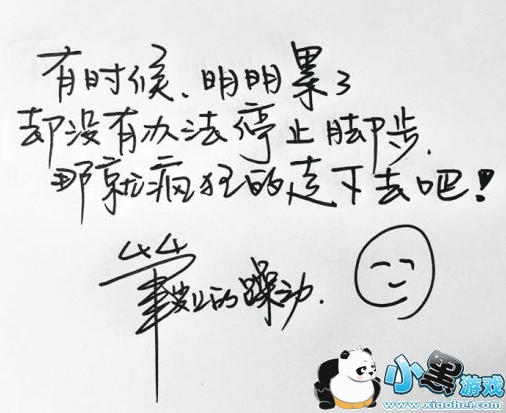 有时候、明明累了
却没有办法停止脚步.
那就疯狂的走下去吧!
笔尖上的躁动.
小黑游戏
www.xiaohei.com